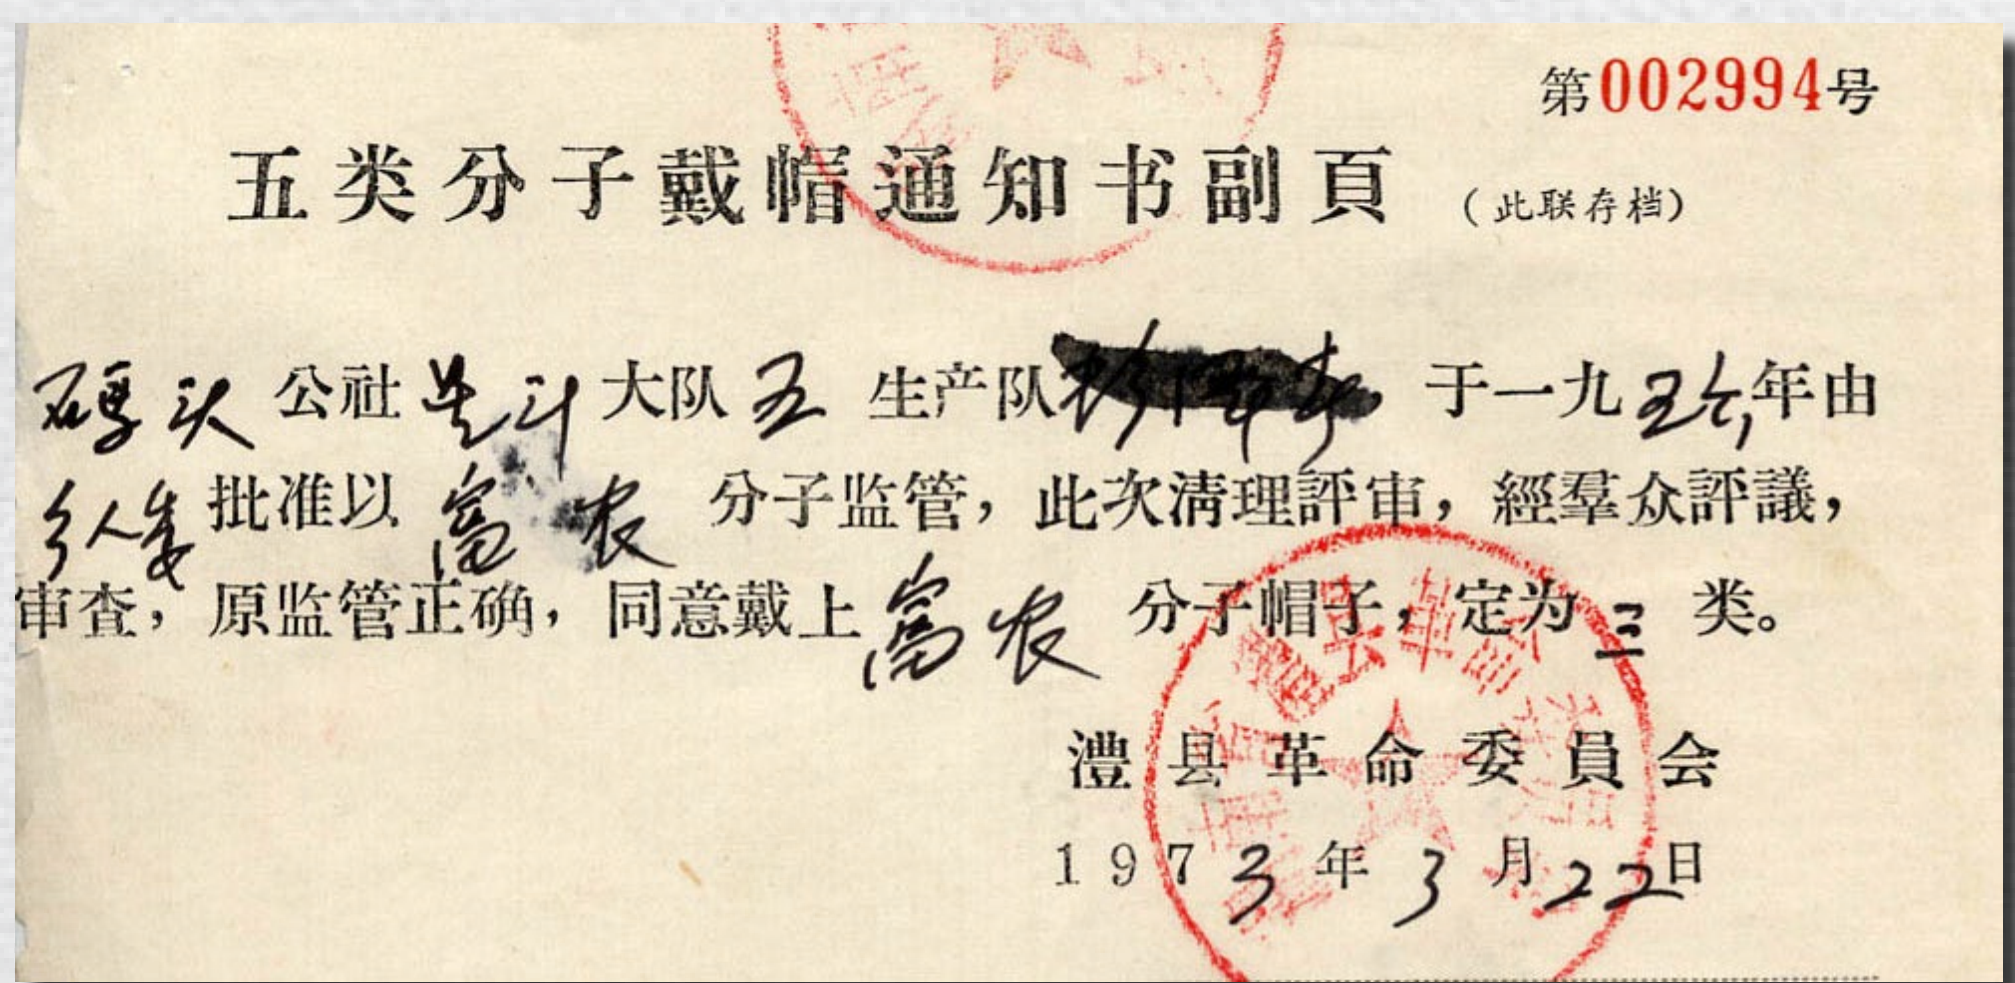 第002994号
五类分子戴帽通知书副頁（此联存档）
码头公社 大队五生产队 于一九五 年由
乡人委批准以富农分子监管，此次清理評审，經羣众評議，
审查，原监管正确，同意戴上富农分子帽子，定为三类。
澧县革命委員会
1973年3月22日